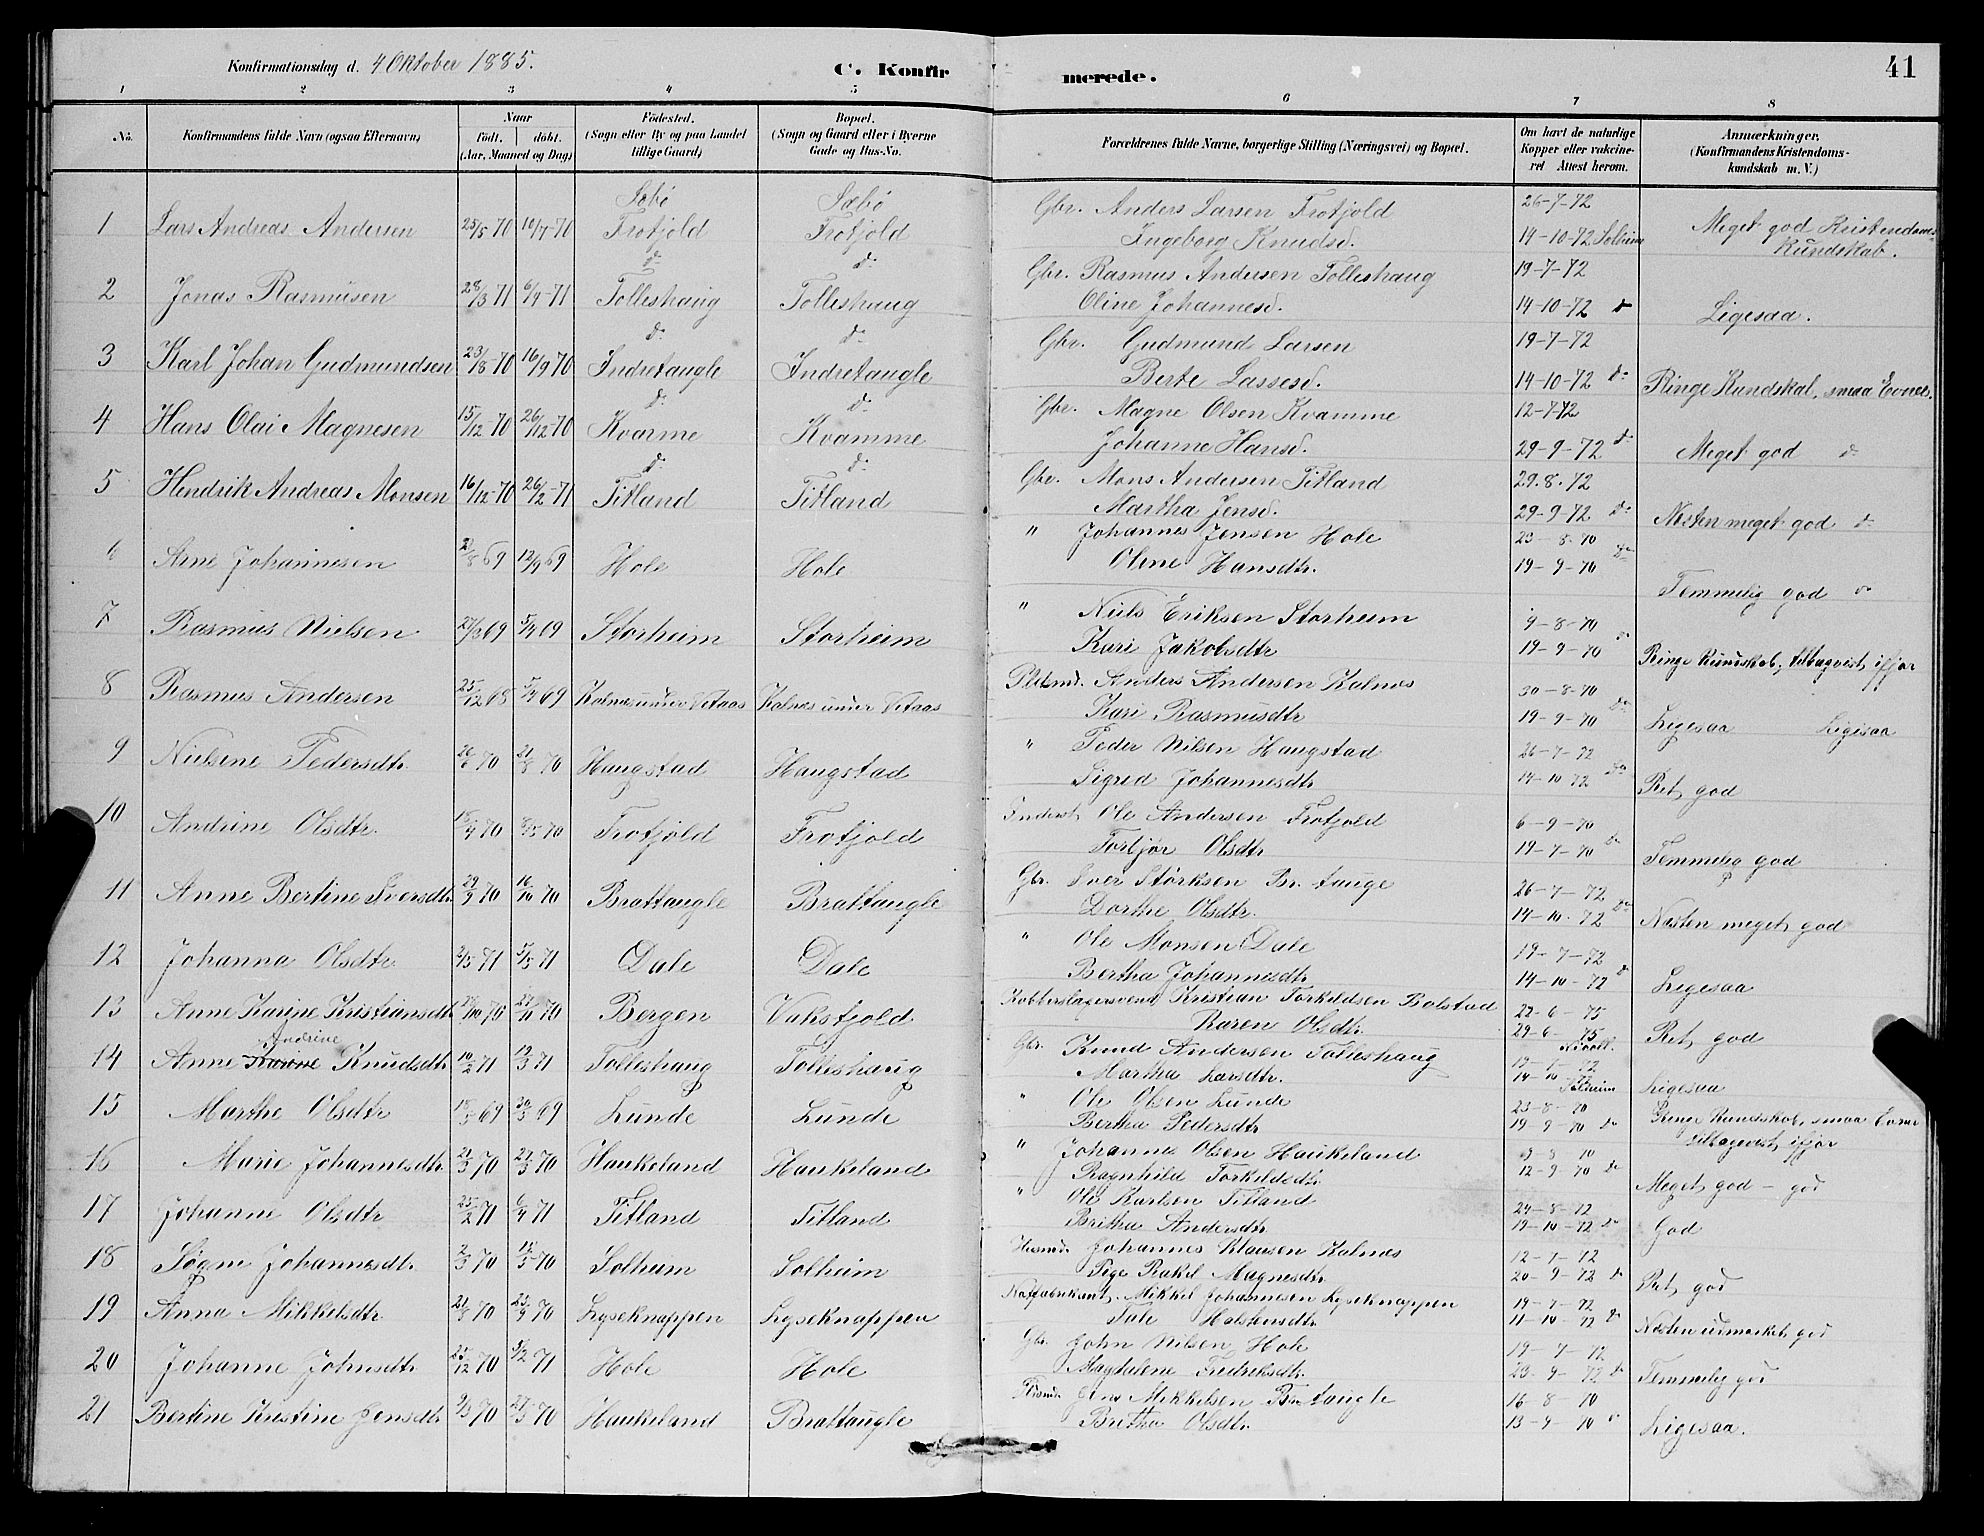 Konfirmationsdag d. 4 Oktober 1885.
C. Konfirmerede.
41
1 2 3 4 5 6 7 8
No.
Konfirmandens fulde Navn (ogsaa Efternavn)
Naar
födt. döbt.
(Aar, Maaned og Dag)
Födested.
(Sogn eller By og paa Landet
tillige Gaard)
Bopæl.
(Sogn og Gaard eller i Byerne
Gade og Hus-No.
Forældrenes fulde Navne, borgerlige Stilling (Næringsvei) og Bopæl.
Om havt de naturlige
Kopper eller vakcine-
ret Attest herom.
Anmærkninger.
(Konfirmandens Kristendoms-
kundskab m. V.)
Sæbö Sæbö Gbr. Anders Larsen Trotjold 26-7-72
1 Lars Andreas Andersen 25/5 70 10/7-70 Trotjold Trotjold Ingeborg Knudsd. 14-10-72 Solheim Meget god Kristendoms-
Kundskab.
d: d: Gbr. Rasmus Andersen Tolleshaug 19-7-72
2 Jonas Rasmusen 28/3 71 6/4-71 Tolleshaug Tolleshaug Oline Johannesd. 14-10-72 d: Ligesaa.
d: d: Gbr. Gudmund Larsen 19-7-72
3 Karl Johan Gudmundsen 23/8-70 16/9 70 Indretaugle Indretaugle Berte Lassesd. 14-10-72 d: Ringe Kundskab, smaa Evner.
d: d: Gbr. Magne Olsen Kvamme 12-7-72
4 Hans Olai Magnesen 15/12 70 26/12-70 Kvamme Kvamme Johanne Hansd. 29-9-72 d: Meget god d:
d: d: Gbr. Mons Andersen Titland 29.8.72
5 Hendrik Andreas Monsen 16/12-70 26/2-71 Titland Titland Martha Jensd. 29-9-72 d: Næsten meget god d:
" Johannes Jensen Hole 23-8-70
6 Arne Johannesen 69 12/9 69 Hole Hole Oline Hansdtr. 19-9-70 do Temmelig god do
" Niels Eriksen Storheim 9-8-70
7 Rasmus Nielsen 27/3 69 5/4 69 Storheim Storheim Kari Jakobsdtr 19-9-70 do Ringe Kundskab, tilbagevist ifjor
Pldsmd. Anders Andersen Kalnæs 30-8-70
8 Rasmus Andersen 25/12 68 5/4 69 Kalnæs under Vetaas Kalnæs under Vetaas Kari Rasmusdtr 19-9-70 do Ligesaa Ligesaa
" Peder Nilsen Haugstad 26-7-72
9 Nielsine Pedersdtr. 26/6 70 21/8 70 Haugstad Haugstad Sigrid Johannesdtr 14-10 72 do Ret god
Inderst Ole Andersen Trotjold 6-9-70
10 Andrine Olsdtr. 18/4 70 8/5 70 Trotjold Trotjold Torbjör Olsdtr 19-7-70 do Temmelig god
Gbr. Iver Störksen Br.tauge 26-7-72
11 Anne Bertine Iversdtr. 29/9 70 16/10 70 Brattaugle Brattaugle Dorthe Olsdtr. 14-10-72 do Næsten meget god
" Ole Monsen Dale 19-7-72
12 Johanna Olsdtr 71 5/3 71 Dale Dale Bertha Johannesdtr 14-10-72 do Ligesaa
Kobberslagersvend Kristian Torkildsen Bolstad 22-6-75
13 Anne Karine Kristiansdtr 70 27/11 70 Bergen Vakstjold Karen Olsdtr. 29-6-75 Ret god
Andrine Gbr. Knud Andersen Tolleshaug
14 Anne Karine Knudsdtr 10/2 71 12/3 71 Tolleshaug Tolleshaug Martha Larsdtr. 14-10 72 Solheim Ligesaa
" Ole Olsen Lunde 23-8-70
15 Marthe Olsdtr 69 30/5 69 Lunde Lunde Bertha Pedersdtr 19-9-70 do Ringe Kundskab, smaa Evner
tilbagevist ifjor
" Johannes Olsen Haukeland
16 Marie Johannesdtr. 21/3 70 27/3 70 Haukeland Haukeland Ragnhild Torkildsdtr. 12-9-70 do Meget god - god
" Ole Karlsen Titland 24-8-72
17 Johanne Olsdtr 25/2 71 6/4 71 Titland Titland Britha Andersdtr 19-10-72 do God
Husmd. Johannes Klausen Kalnæs 12-7-72
18 Søgni Johannesdtr 70 70 Solheim Solheim Pige Rakel Magnesdtr 20-9-72 do Ret god
Mikkel Johannesen Lyseknappen 19-7-72
19 Anna Mikkelsdtr 70 70 Lyseknappen Lyseknappen Holstensdtr 11-10 72 do Næsten udmærket god
Gbr. John Nilsen Hole 19-7-72
20 Johanne Johnsdtr 25/12 70 5/2 71 Hole Hole Magdalene Fredriksdtr. 23-9-72 do Temmelig god
Jens Mikkelsen Brtaugle 16-8-70
21 Bertine Kristine Jensdtr 70 27/3 70 Haukeland Brattaugle Britha Olsdtr. 13-9-70 Ligesaa.